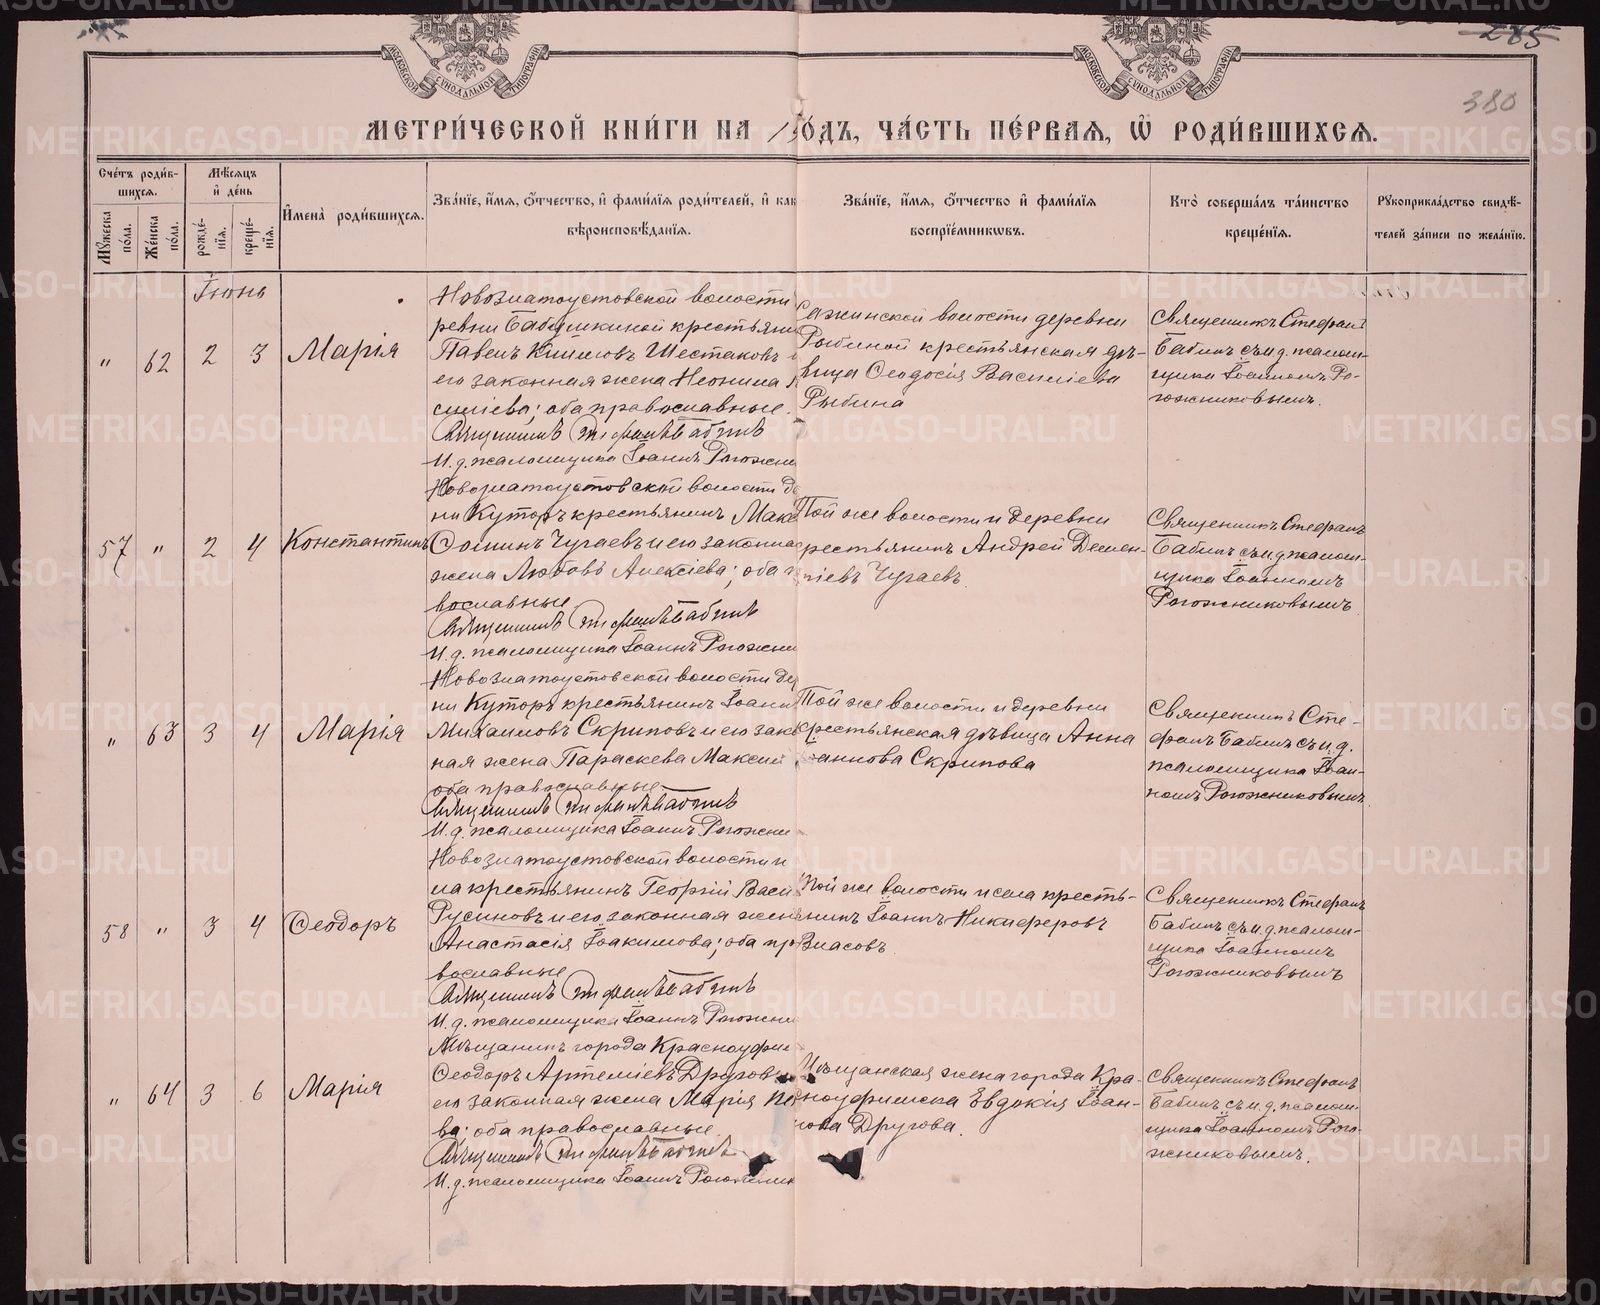 285
380
МОСКОВСКОЙ СѴНОДАЛЬНОЙ ТИПОГРАФІИ
МОСКОВСКОЙ СѴНОДАЛЬНОЙ ТИПОГРАФІИ
МЕТРИ́ЧЕСКОЙ КНИ́ГИ НА 1 ГО́ДЪ, ЧА́СТЬ ПЕ́РВАѦ, Ѡ҆ РОДИ́ВШИХСѦ.
Сче́тъ роди́в-
шихсѧ.
Мꙋ́жеска по́ла.
Же́нска по́ла.
Мѣ́сѧцъ
и҆ де́нь
рожде́-
нїѧ.
креще́-
нїѧ.
И҆мена̀ роди́вшихсѧ.
Зва́нїе, и҆́мѧ, ѻ҆́тчество, и҆ фами́лїѧ роди́телей, и҆ как
вѣ́роисповѣ́данїѧ.
Зва́нїе, и҆́мѧ, ѻ҆́тчество и҆ фами́лїѧ
воспрїе́мникѡвъ.
Кто̀ соверша́лъ та́инство
креще́нїѧ.
Рꙋкоприкла́дство свидѣ́-
телей за́писи по жела́нїю.
Іюнь
" 62 2 3 Марія
Новозлатоустовской волости
ревни Бабушкиной крестьяни
Павелъ Климовъ Шестаковъ и
его законная жена Неонила
силіева; оба православные.
Священникъ Стефанъ Бабинъ
И. д. псаломщика Іоаннъ Рогожни
Сажинской волости деревни
Рыбиной крестьянская дѣ-
вица Ѳеодосія Василіева
Рыбина
Священникъ Стефанъ
Бабинъ съ и. д. псалом-
щика Іоанномъ Ро-
гожниковымъ.
57 " 2 4 Константинъ
Новозлатоустовской волости де
ни Куторъ крестьянинъ Макс
Ѳоминъ Чугаевъ и его законна
жена Любовь Алексіева; оба п
вославные
Священникъ Стефанъ Бабинъ
И. д. псаломщика Іоаннъ Рогожни
Той же волости и деревни
крестьянинъ Андрей Демен-
тіевъ Чугаевъ.
Священникъ Стефанъ
Бабинъ съ и. д. псалом-
щика Іоанномъ
Рогожниковымъ
" 63 3 4 Марія
Новозлатоустовской волости де
ни Куторъ крестьянинъ Іоанн
Михаиловъ Скриповъ и его зако
ная жена Параскева Максим
оба православные
Священникъ Стефанъ Бабинъ
И. д. псаломщика Іоаннъ Рогожни
Той же волости и деревни
крестьянская дѣвица Анна
Іоаннова Скрипова
Священникъ Сте-
фанъ Бабинъ съ и. д.
псаломщика Іоан-
номъ Рогожниковымъ
58 " 3 4 Ѳеодоръ
Новозлатоустовской волости и
ла крестьянинъ Георгій Васи
Русиновъ и его законная жен
Анастасія Іоакимова; оба пр
вославные
Священникъ Стефанъ Бабинъ
И. д. псаломщика Іоаннъ Рогожни
Той же волости и села кресть-
нинъ Іоаннъ Никифоровъ
Власовъ
Священникъ Стефанъ
Бабинъ съ и. д. псалом-
щика Іоанномъ
Рогожниковымъ
" 64 3 6 Марія
Мѣщанинъ города Красноуфи
Ѳеодоръ Артеміевъ Друговъ
его законная жена Марія
ва; оба православные
Священникъ Стефанъ Бабинъ
И. д. псаломщика Іоаннъ Рогожник
Мѣщанская жена города Кра-
сноуфимска Евдокія Іоан-
нова Другова.
Священникъ Стефанъ
Бабинъ съ и. д. псалом-
щика Іоанномъ Рого-
жниковымъ.
METRIKI.GASO-URAL.RU